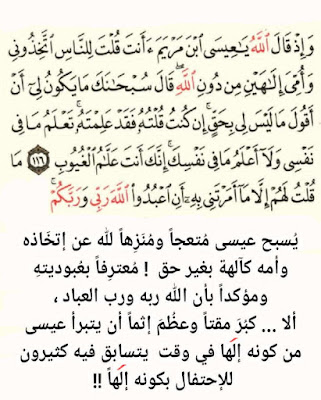 وَإِذْ قَالَ ٱللَّهُ يَٰعِيسَى ٱبْنَ مَرْيَمَ ءَأَنتَ قُلْتَ لِلنَّاسِ ٱتَّخِذُونِى
وَأُمِّىَ إِلَٰهَيْنِ مِن دُونِ ٱللَّهِۖ قَالَ سُبْحَٰنَكَ مَا يَكُونُ لِىٓ أَنْ
أَقُولَ مَا لَيْسَ لِى بِحَقٍّۚ إِن كُنتُ قُلْتُهُۥ فَقَدْ عَلِمْتَهُۥۚ تَعْلَمُ مَا فِى
نَفْسِى وَلَآ أَعْلَمُ مَا فِى نَفْسِكَۚ إِنَّكَ أَنتَ عَلَّٰمُ ٱلْغُيُوبِ ١١٦ مَا
قُلْتُ لَهُمْ إِلَّا مَآ أَمَرْتَنِى بِهِۦٓ أَنِ ٱعْبُدُوا۟ ٱللَّهَ رَبِّى وَرَبَّكُمْۚ
يُسبح عيسى مُتعجباً ومُنَزِهاً لله عن إتخَاذه
وأمه كآلهة بغير حق ! مُعترِفاً بعُبوديتهِ
ومؤكداً بأن الله ربه ورب العباد ،
ألا ... كبُرَ مقتاً وعظُمَ إثماً أن يتبرأ عيسى
من كونه إلَها في وقت يتسابق فيه كثيرون
للإحتفال بكونه إلَهاً !!